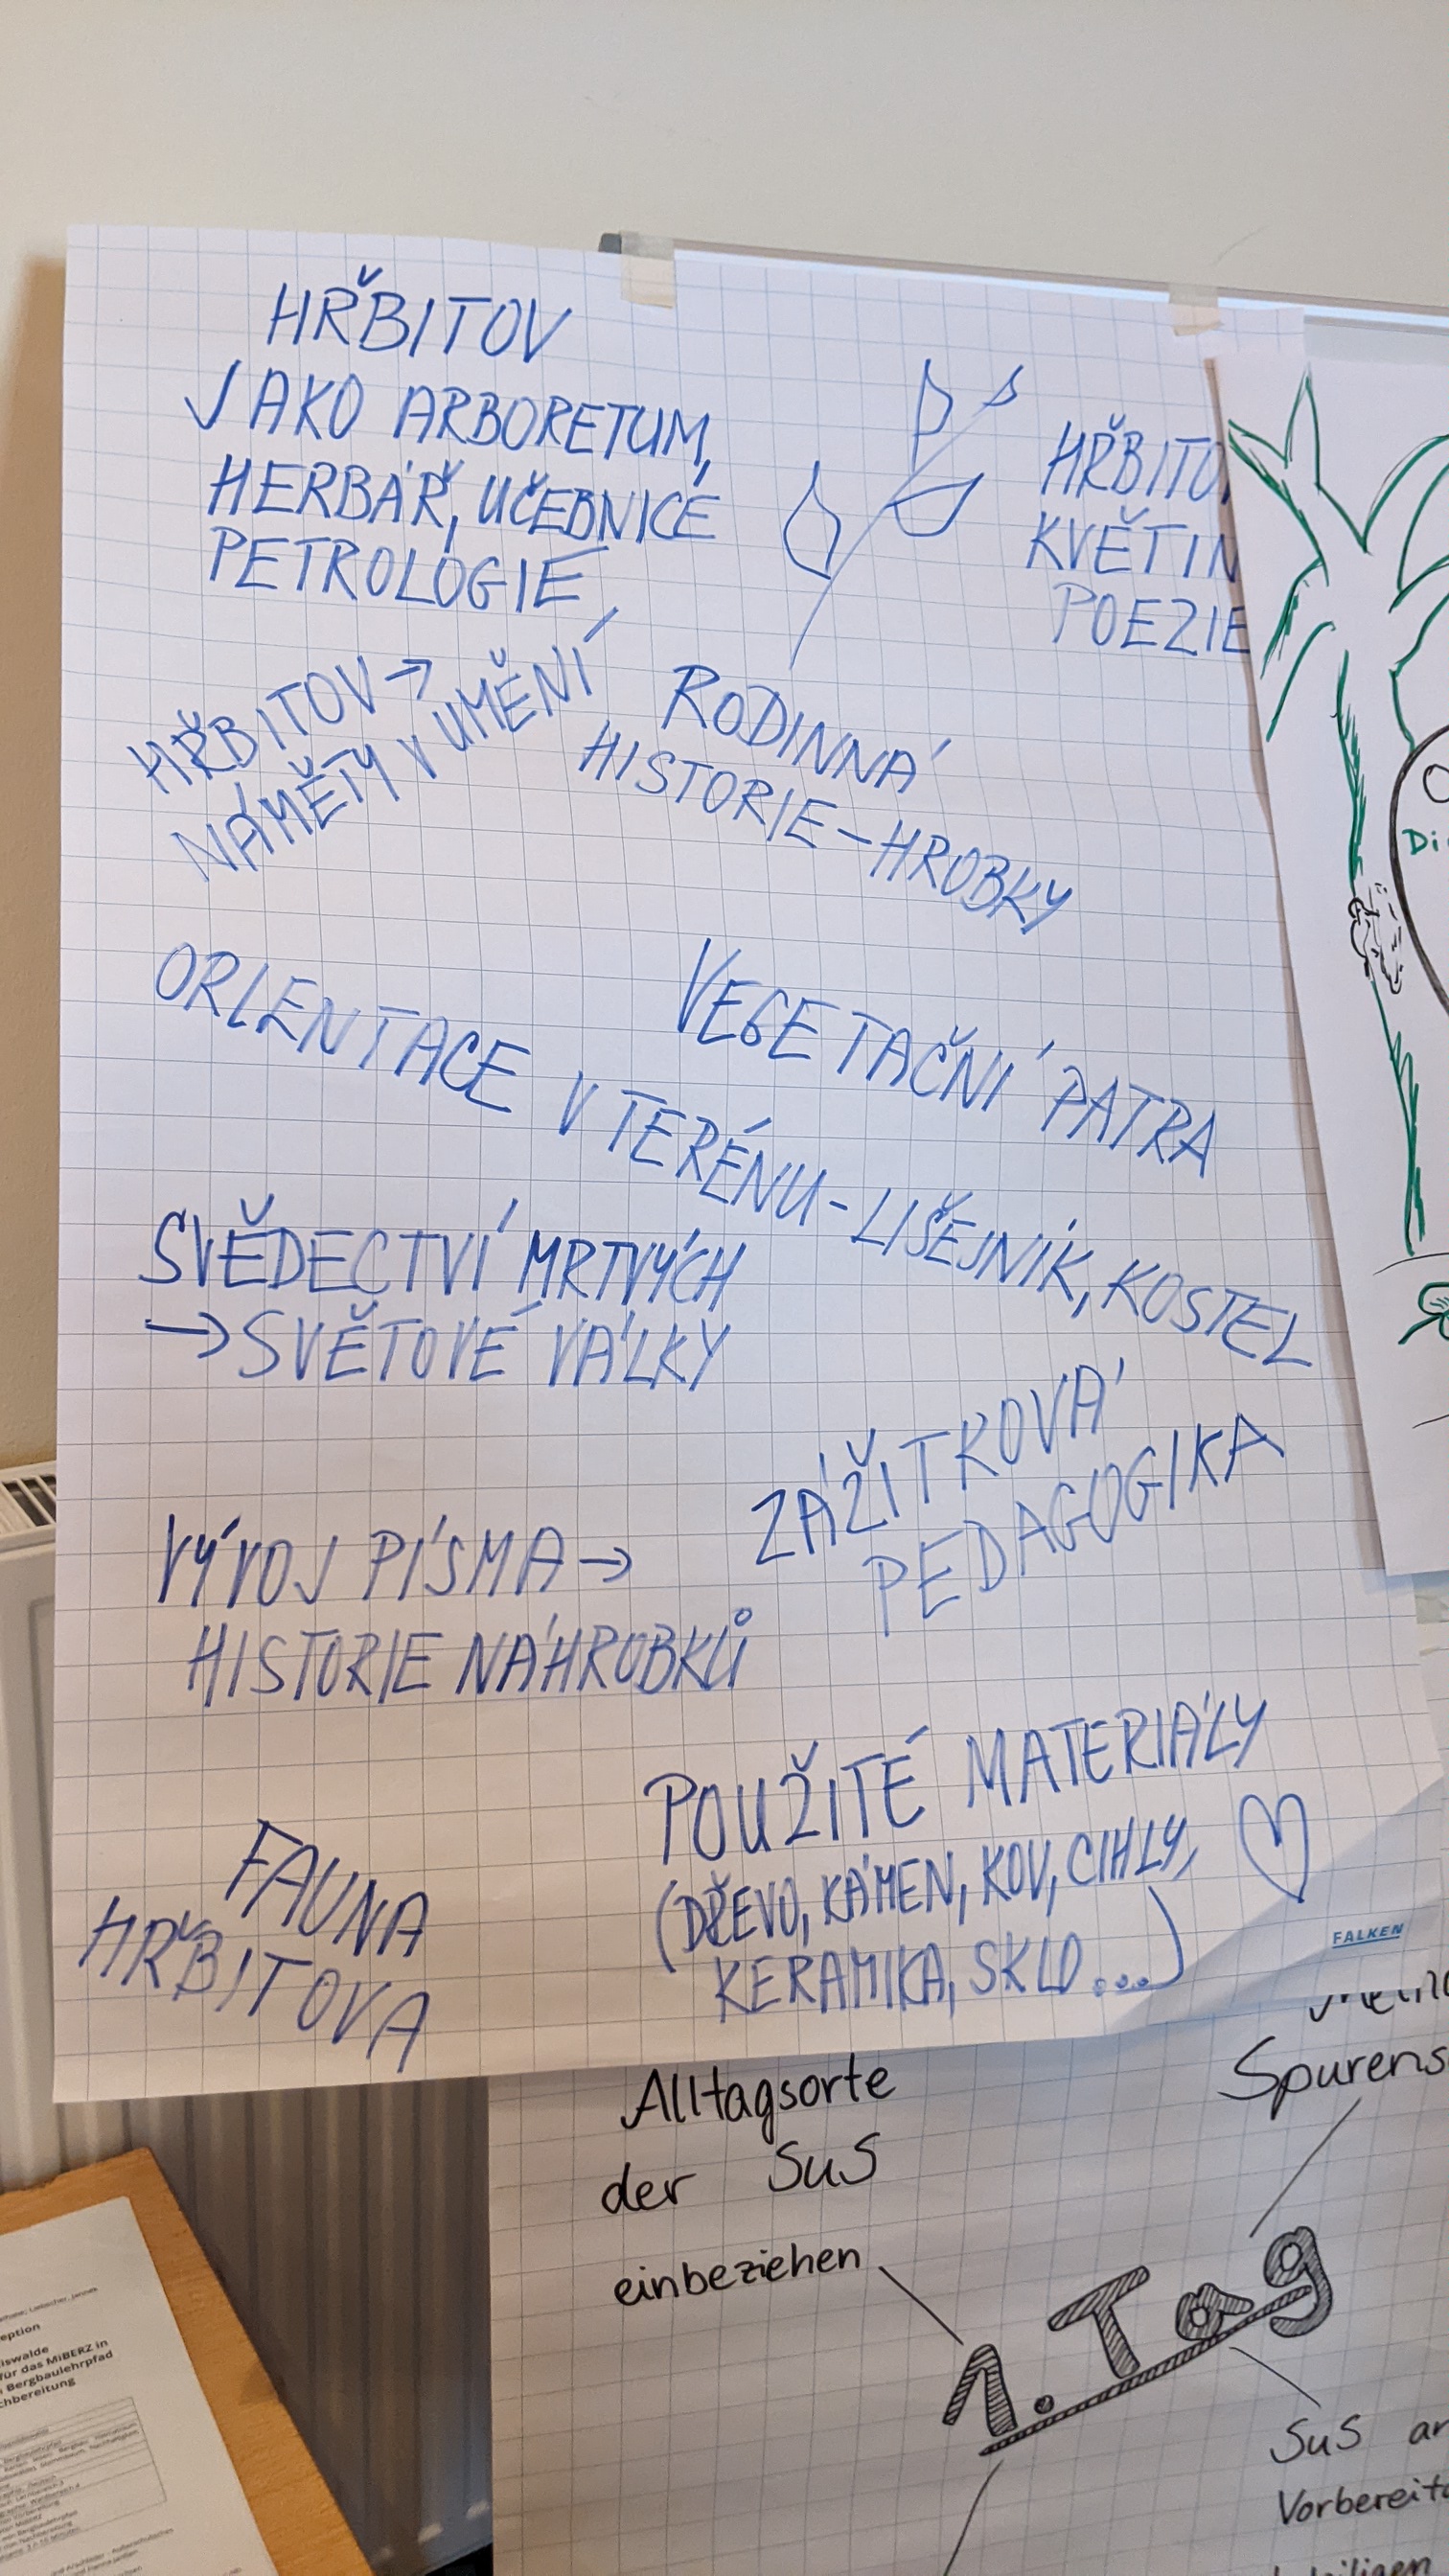 HŘBITOV
JAKO ARBORETUM,
HERBÁŘ, UČEBNICE
PETROLOGIE,
KVĚTIN
POEZIE
HŘBITOV →
NÁMĚTY V UMĚNÍ
RODINNÁ
HISTORIE - HROBKY
VEGETAČNÍ PATRA
ORIENTACE V TERÉNU - LIŠEJNÍK, KOSTEL
SVĚDECTVÍ MRTVÝCH
→ SVĚTOVÉ VÁLKY
ZÁŽITKOVÁ
PEDAGOGIKA
VÝVOJ PÍSMA →
HISTORIE NÁHROBKŮ
POUŽITÉ MATERIÁLY
(DŘEVO, KÁMEN, KOV, CIHLY,
KERAMIKA, SKLO...)
FAUNA
HŘBITOVA
FALKEN
Alltagsorte
der SuS
einbeziehen
1. Tag
SuS
für das MiBERZ in
Bergbaulehrpfad